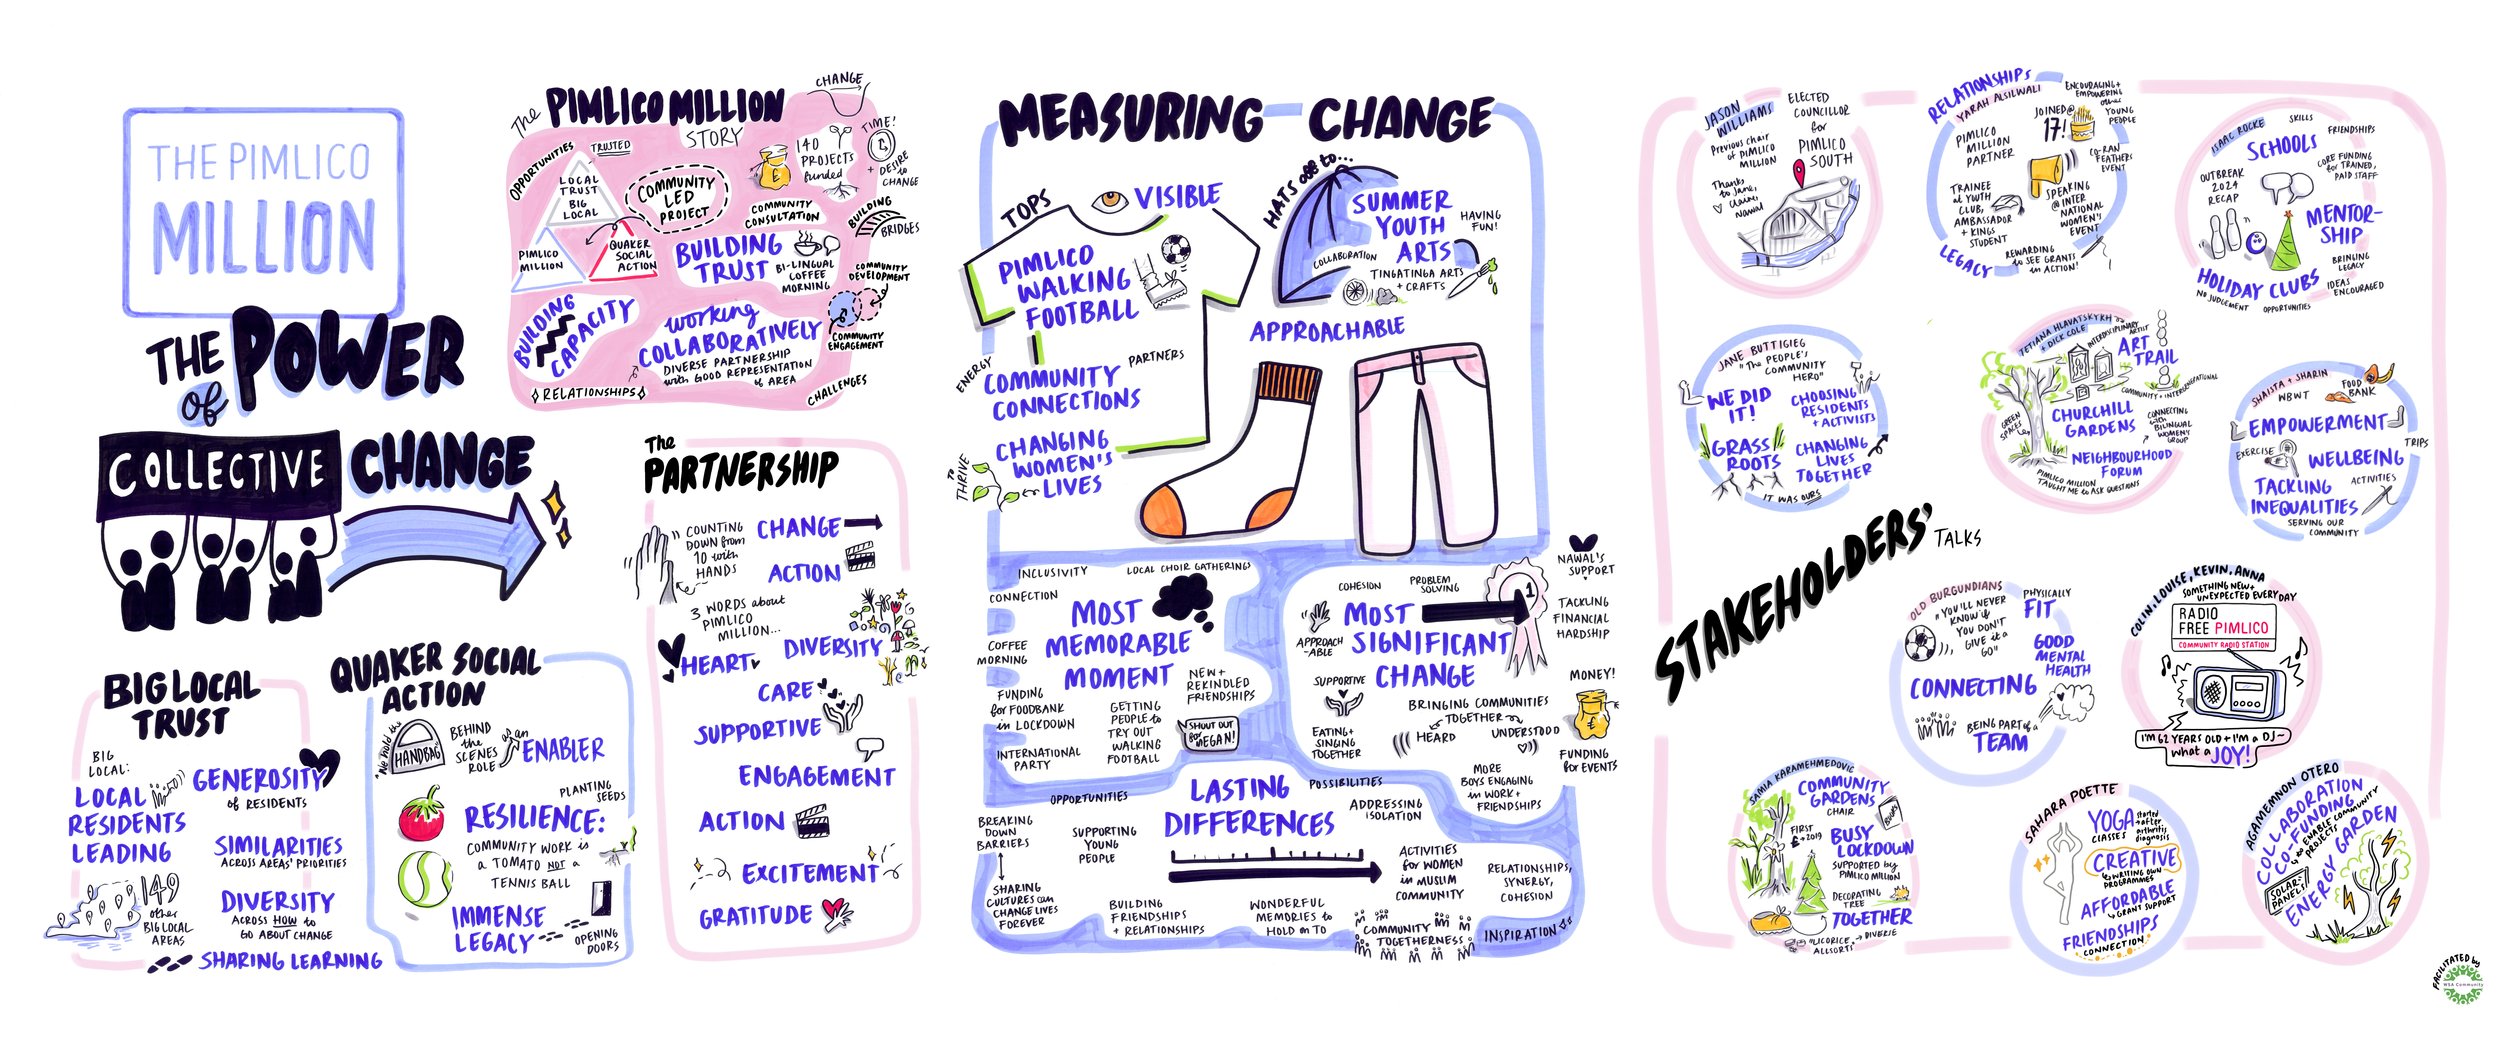 THE PIMLICO
MILLION
THE POWER
of
COLLECTIVE
CHANGE
BIG LOCAL
TRUST
BIG
LOCAL:
LOCAL
RESIDENTS
LEADING
149
other
BIG LOCAL
AREAS
GENEROSITY
of RESIDENTS
SIMILARITIES
ACROSS AREAS' PRIORITIES
DIVERSITY
ACROSS HOW to
GO ABOUT CHANGE
SHARING LEARNING
QUAKER SOCIAL
ACTION
"We hold the
HANDBAG"
BEHIND
the
SCENES
ROLE as an
ENABLER
PLANTING
SEEDS
RESILIENCE:
COMMUNITY WORK is
a TOMATO NOT a
TENNIS BALL
IMMENSE
LEGACY
OPENING
DOORS
The PIMLICO MILLION
STORY
CHANGE
OPPORTUNITIES
TRUSTED
LOCAL
TRUST
BIG
LOCAL
PIMLICO
MILLION
QUAKER
SOCIAL
ACTION
COMMUNITY
LED
PROJECT
£
140
PROJECTS
funded
TIME!
+ DESIRE
to
CHANGE
COMMUNITY
CONSULTATION
BUILDING
BRIDGES
BUILDING
TRUST
BI-LINGUAL
COFFEE
MORNING
COMMUNITY
DEVELOPMENT
COMMUNITY
ENGAGEMENT
BUILDING
CAPACITY
working
COLLABORATIVELY
DIVERSE PARTNERSHIP
with GOOD REPRESENTATION
of AREA
RELATIONSHIPS
CHALLENGES
The
PARTNERSHIP
COUNTING
DOWN from
10 with
HANDS
CHANGE
ACTION
3 WORDS about
PIMLICO
MILLION...
DIVERSITY
HEART
CARE
SUPPORTIVE
ENGAGEMENT
ACTION
EXCITEMENT
GRATITUDE
MEASURING CHANGE
TOPS
VISIBLE
PIMLICO
WALKING
FOOTBALL
ENERGY
PARTNERS
COMMUNITY
CONNECTIONS
CHANGING
WOMEN'S
LIVES
TO
THRIVE
HATS off to...
SUMMER
YOUTH
ARTS
HAVING
FUN!
COLLABORATION
TINGATINGA ARTS
+ CRAFTS
APPROACHABLE
INCLUSIVITY
LOCAL CHOIR GATHERINGS
CONNECTION
MOST
MEMORABLE
MOMENT
COFFEE
MORNING
NEW +
REKINDLED
FRIENDSHIPS
FUNDING
for FOODBANK
in LOCKDOWN
GETTING
PEOPLE to
TRY OUT
WALKING
FOOTBALL
SHOUT OUT
for MEGAN!
INTERNATIONAL
PARTY
COHESION
PROBLEM
SOLVING
1
NAWAL'S
SUPPORT
APPROACH
-ABLE
MOST
SIGNIFICANT
CHANGE
TACKLING
FINANCIAL
HARDSHIP
SUPPORTIVE
BRINGING COMMUNITIES
TOGETHER
HEARD
UNDERSTOOD
EATING +
SINGING
TOGETHER
MONEY!
£
FUNDING
for EVENTS
MORE
BOYS ENGAGING
in WORK +
FRIENDSHIPS
OPPORTUNITIES
LASTING
DIFFERENCES
POSSIBILITIES
ADDRESSING
ISOLATION
BREAKING
DOWN
BARRIERS
SUPPORTING
YOUNG
PEOPLE
SHARING
CULTURES can
CHANGE LIVES
FOREVER
BUILDING
FRIENDSHIPS
+ RELATIONSHIPS
WONDERFUL
MEMORIES to
HOLD on TO
ACTIVITIES
for WOMEN
in MUSLIM
COMMUNITY
RELATIONSHIPS,
SYNERGY,
COHESION
COMMUNITY
TOGETHERNESS
INSPIRATION
STAKEHOLDERS' TALKS
JASON
WILLIAMS
Previous chair
of PIMLICO
MILLION
ELECTED
COUNCILLOR
for
PIMLICO
SOUTH
Thanks
to Jane,
Claire,
Nawal
RELATIONSHIPS
YARAH ALSILWALI
ENCOURAGING +
EMPOWERING
other
YOUNG
PEOPLE
PIMLICO
MILLION
PARTNER
JOINED @
17!
CO-RAN
FEATHERS
EVENT
TRAINEE
at YOUTH
CLUB,
AMBASSADOR
+ KINGS
STUDENT
SPEAKING
@ INTER
NATIONAL
WOMEN'S
EVENT
LEGACY
REWARDING
to SEE GRANTS
in ACTION!
ISAAC ROCKE
SKILLS
FRIENDSHIPS
SCHOOLS
CORE FUNDING
for TRAINED,
PAID STAFF
OUTBREAK
2024
RECAP
MENTOR-
SHIP
HOLIDAY CLUBS
BRINGING
LEGACY
IDEAS
ENCOURAGED
NO JUDGEMENT
OPPORTUNITIES
JANE BUTTIGIEG
"The PEOPLE'S
COMMUNITY
HERO"
WE DID
IT!
CHOOSING
RESIDENTS
+ ACTIVISTS
GRASS
ROOTS
CHANGING
LIVES
TOGETHER
IT WAS OURS
TETIANA HLAVATSKYKH
+ DICK COLE
INTERDISCIPLINARY
ARTIST
ART
TRAIL
COMMUNITY + INTERGENERATIONAL
GREEN
SPACES
CHURCHILL
GARDENS
CONNECTING
with
BILINGUAL
WOMEN'S
GROUP
NEIGHBOURHOOD
FORUM
PIMLICO MILLION
TAUGHT ME to ASK QUESTIONS
SHAISTA + SHARIN
WBWT
FOOD
BANK
EMPOWERMENT
TRIPS
EXERCISE
WELLBEING
TACKLING
INEQUALITIES
ACTIVITIES
SERVING OUR
COMMUNITY
OLD BURGUNDIANS
"YOU'LL NEVER
KNOW if
YOU DON'T
GIVE it a
GO"
PHYSICALLY
FIT
GOOD
MENTAL
HEALTH
CONNECTING
BEING PART of a
TEAM
COLIN, LOUISE, KEVIN, ANNA
SOMETHING NEW +
UNEXPECTED EVERY DAY
RADIO
FREE PIMLICO
COMMUNITY RADIO STATION
I'M 62 YEARS OLD + I'm a DJ~
what a JOY!
SAMIA KARAMEHMEDOVIC
COMMUNITY
GARDENS
CHAIR
BOOKS
FIRST
£ → 2019
BUSY
LOCKDOWN
SUPPORTED by
PIMLICO MILLION
DECORATING
TREE
TOGETHER
"LICORICE
ALLSORTS" → DIVERSE
SAHARA POETTE
YOGA
CLASSES
started
after
arthritis
diagnosis
CREATIVE
WRITING OWN
PROGRAMMES
AFFORDABLE
GRANT SUPPORT
FRIENDSHIPS
CONNECTION
AGAMEMNON OTERO
COLLABORATION
CO-FUNDING
to ENABLE COMMUNITY
PROJECTS
SOLAR
PANELS!
ENERGY GARDEN
FACILITATED by
WSA Community